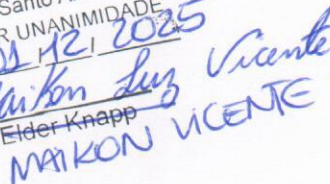 Santo A
R UNANIMIDADE
01 / 12 / 2025
Maikon Luz Vicente
Elder Knapp
MAIKON VICENTE